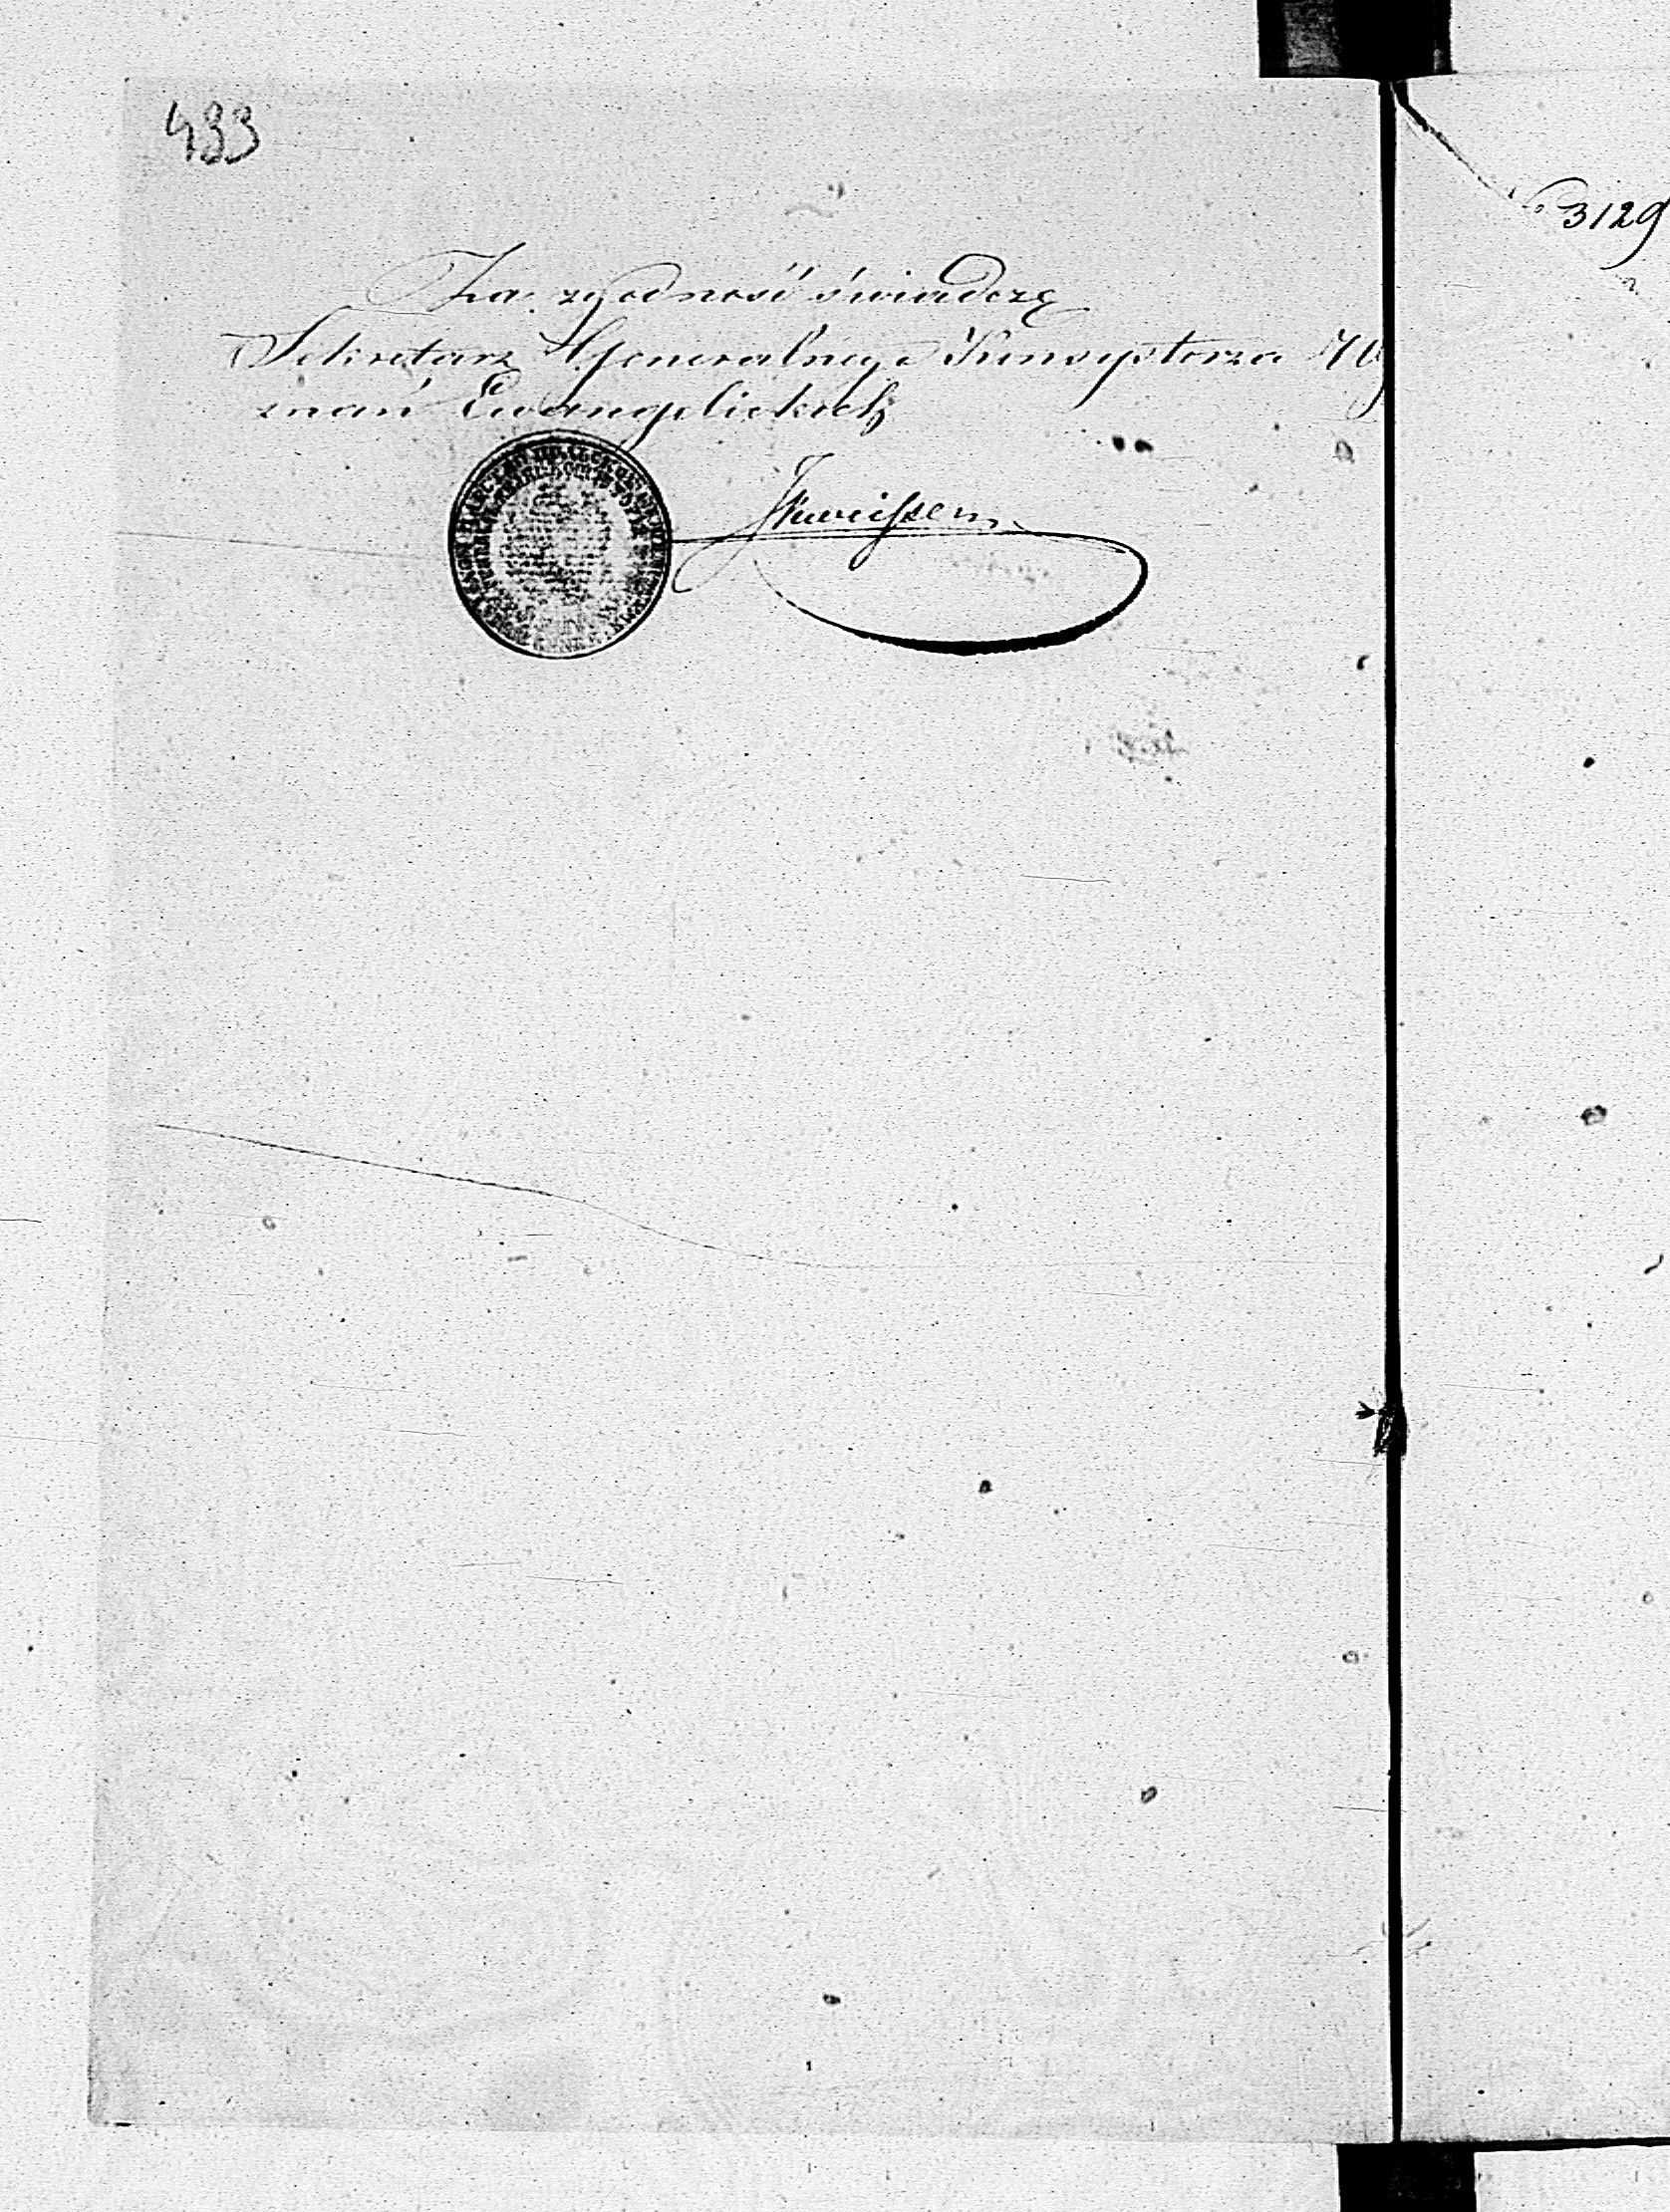 433
Za zgodność świadczę
Sekretarz Generalny Konsystorza Wy
znań Ewangelickich
3129